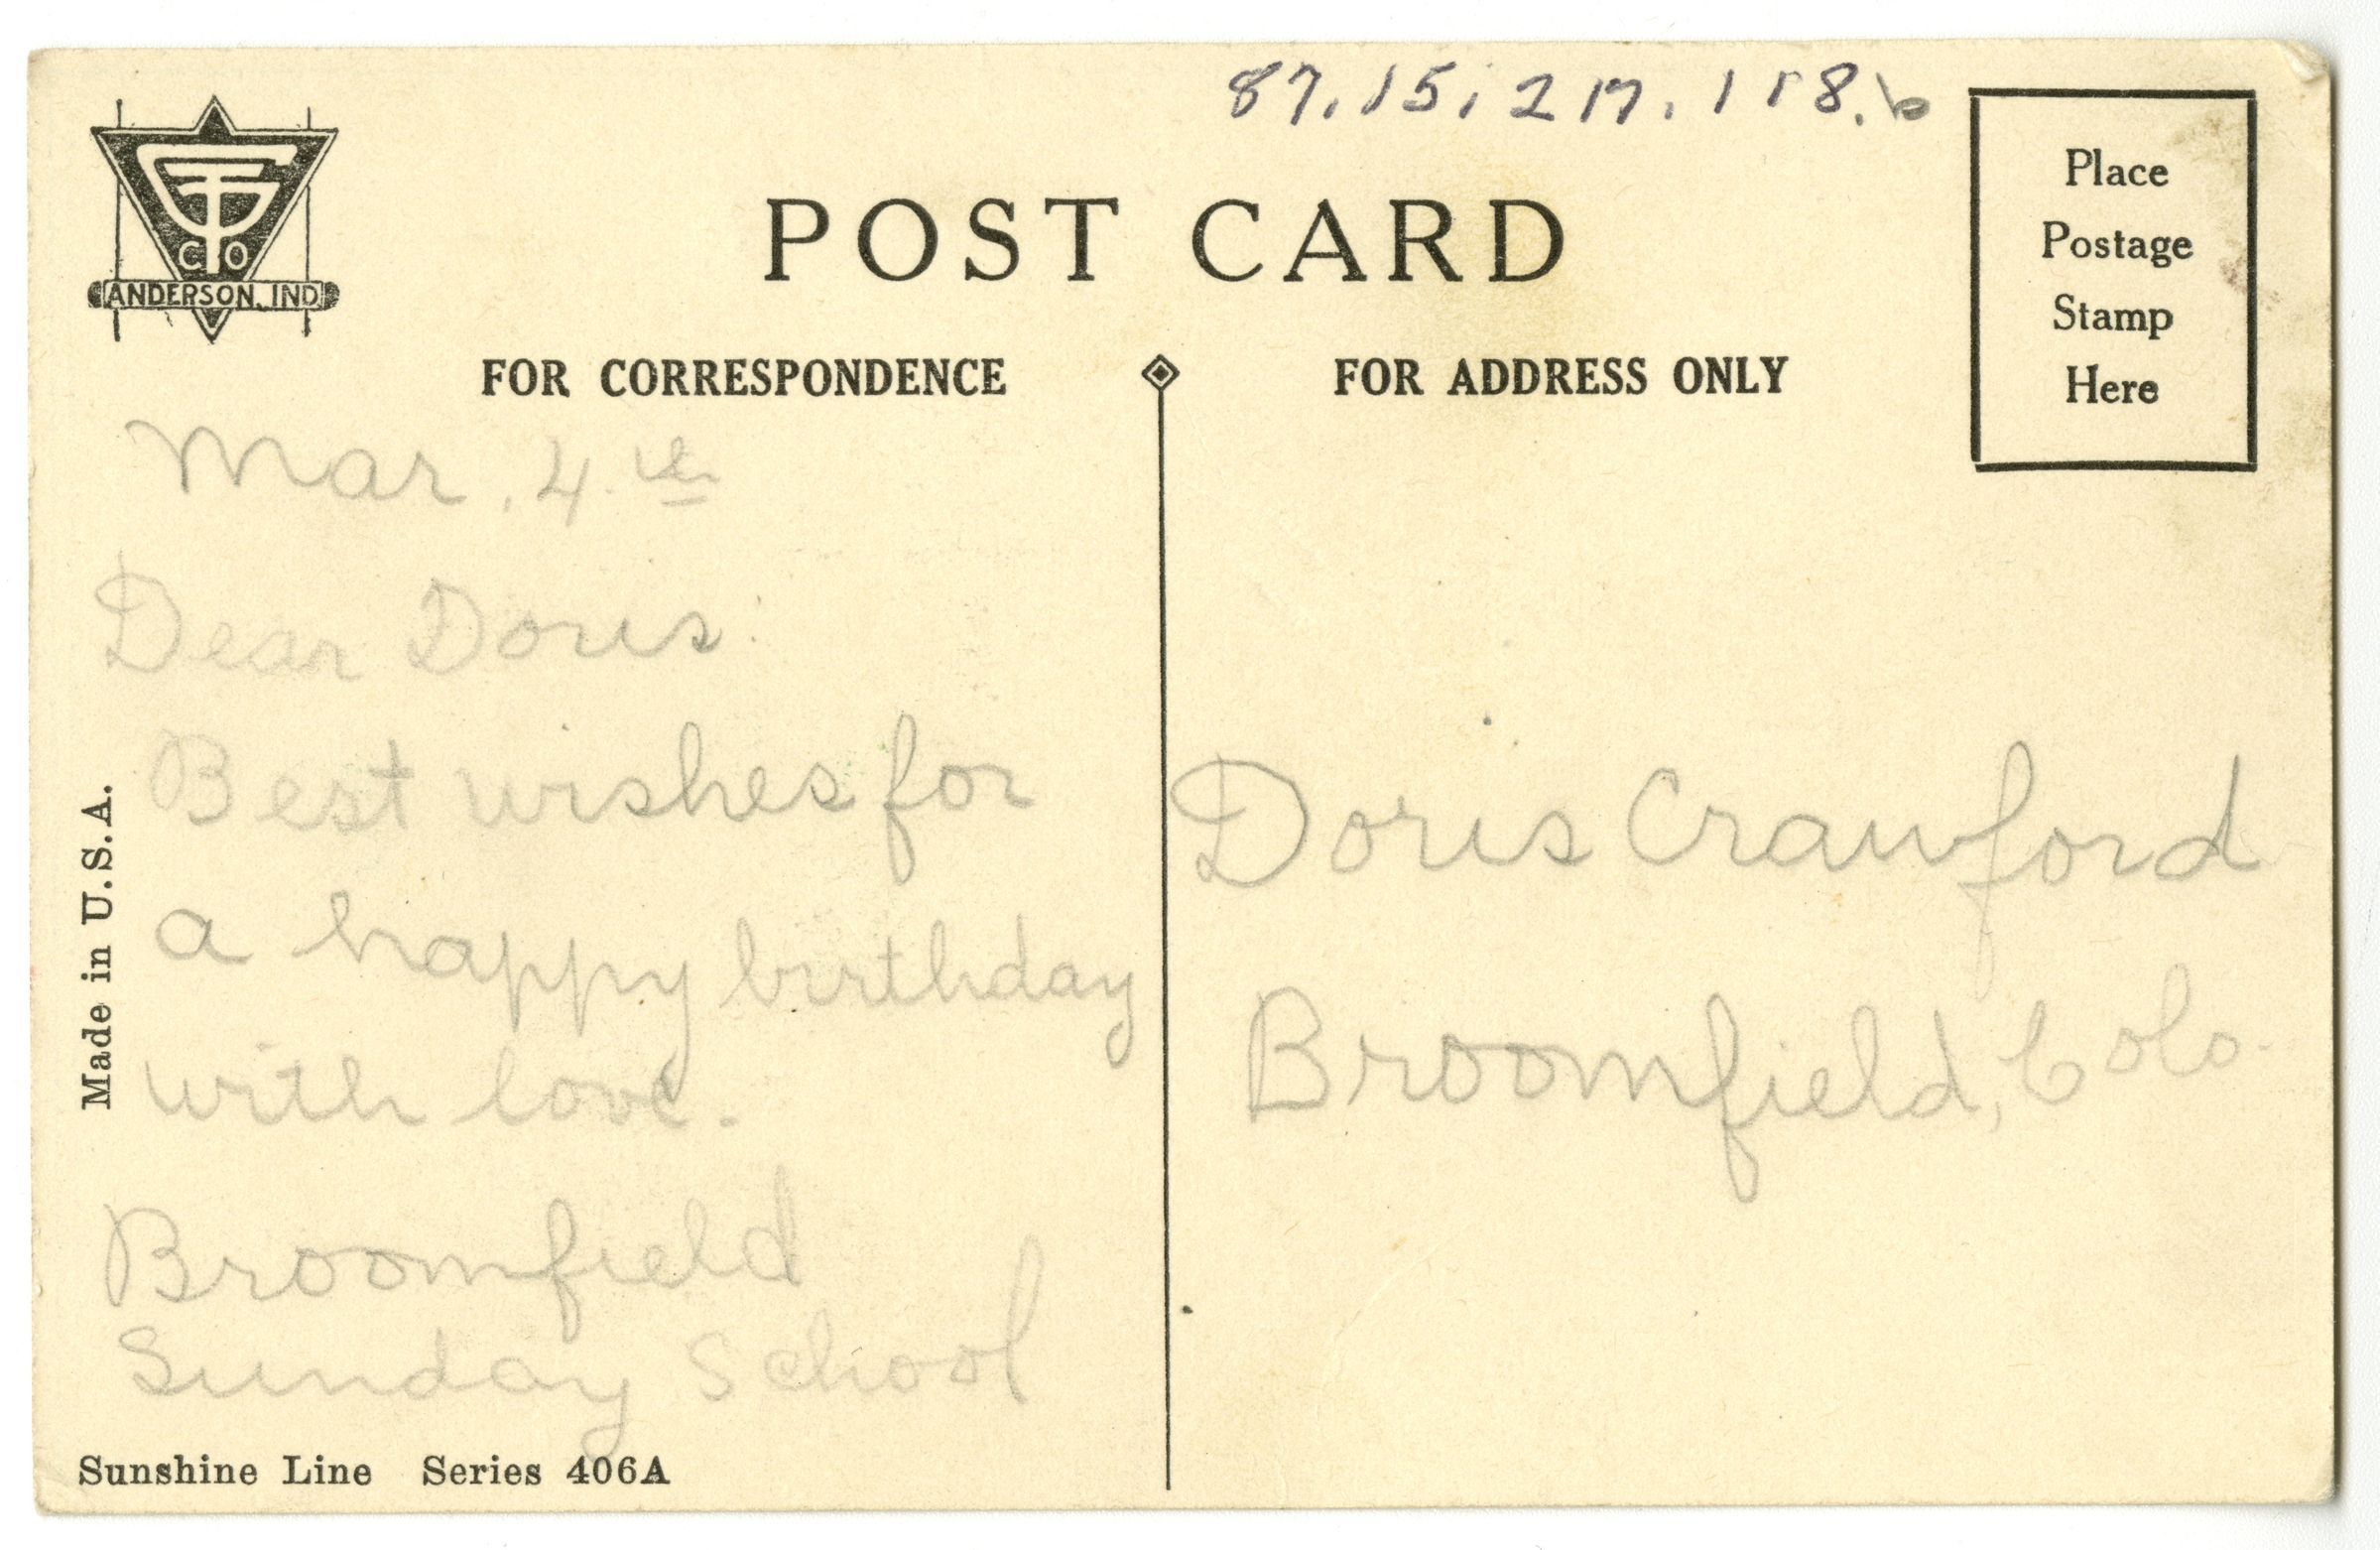 87.15.217.118.b
CO
ANDERSON, IND.
POST CARD
Place
Postage
Stamp
Here
FOR CORRESPONDENCE
FOR ADDRESS ONLY
Mar. 4.th
Dear Doris:
Best wishes for
a happy birthday
with love.
Broomfield
Sunday School
Doris Crawford
Broomfield, Colo.
Made in U.S.A.
Sunshine Line Series 406A